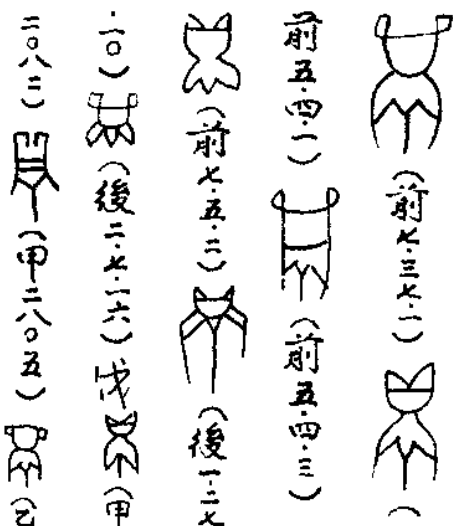 （前七·三七·一）（
前五·四·一）（前五·四·三）
（前七·五·二）（後一·二七
·一〇）（後二·七·一六）（甲
二〇八二）（甲二八〇五）（乙